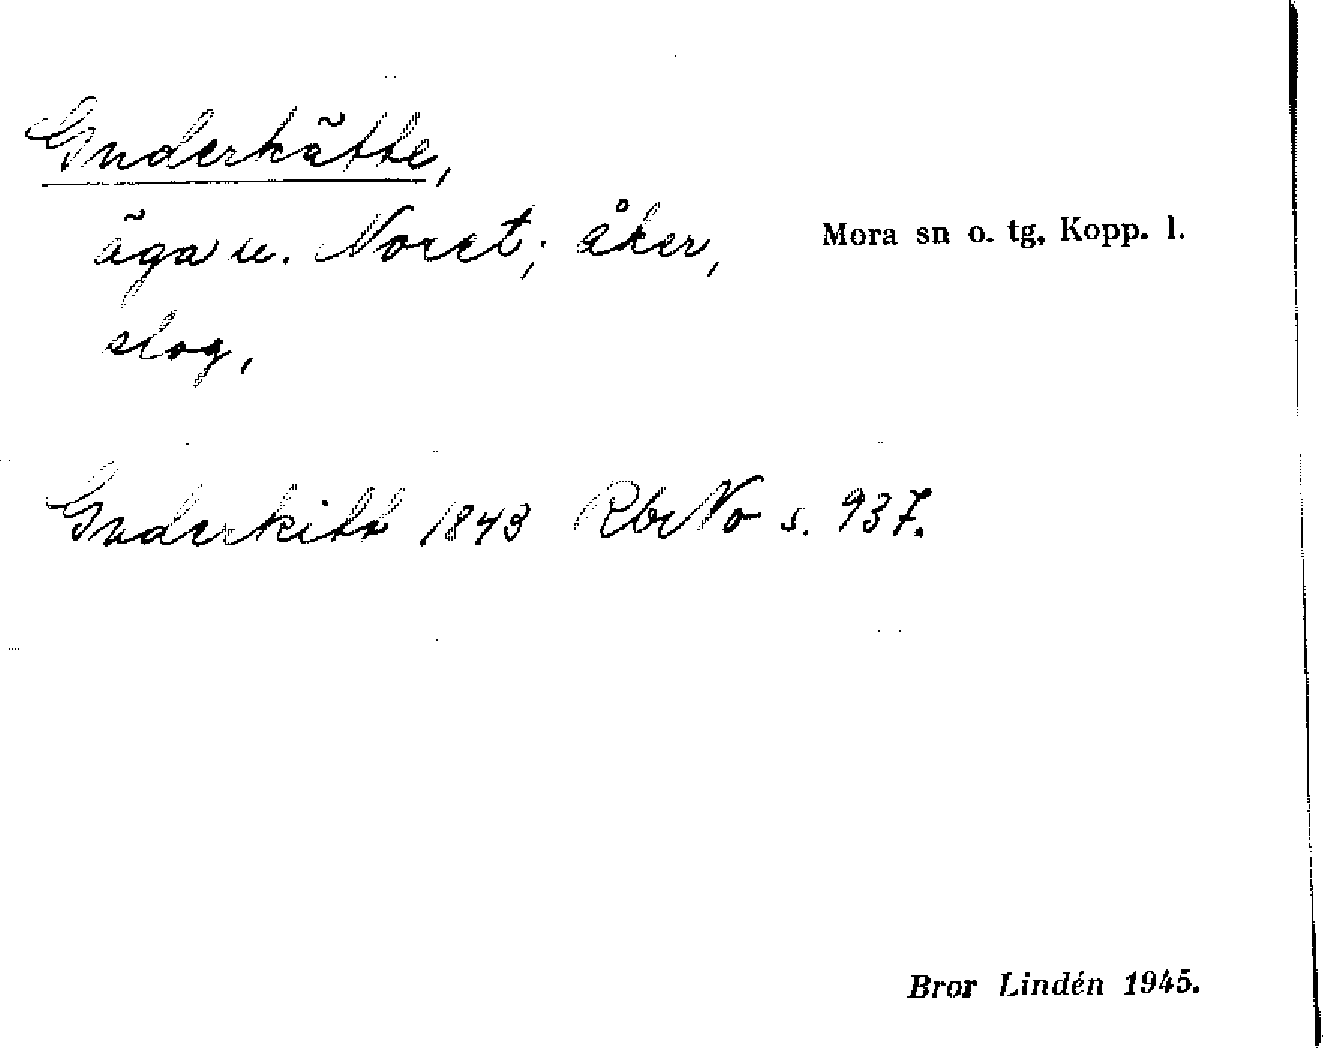 Gnderkätte,
äga u. Noret; åker,
slog,
Mora sn o. tg. Kopp. l.
Gnderkitt 1843 RbrNo s. 937.
Bror Lindén 1945.